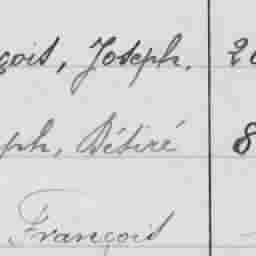 çois, Joseph. 2
ph, Désiré 8
François